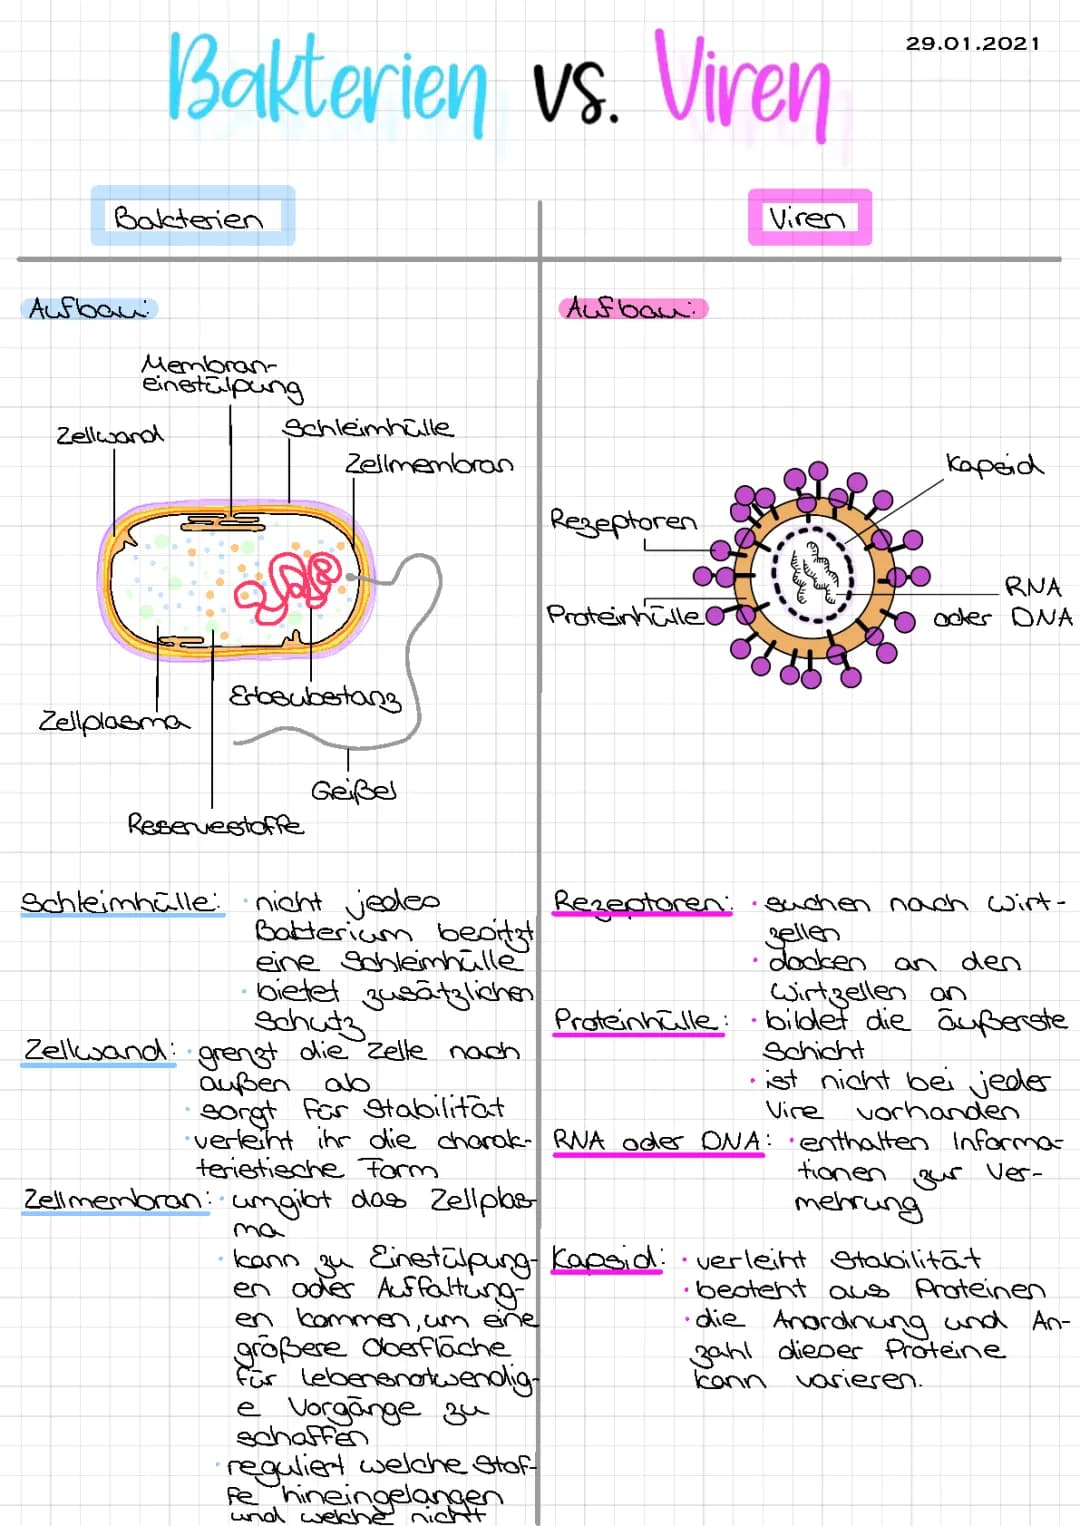 29.01.2021
Bakterien vs. Viren
Bakterien
Aufbau:
Membran-
einstülpung
Zellwand
Schleimhülle
Zellmembran
Erbsubstanz
Zellplasma
Geißel
Reservestoffe
Schleimhülle: · nicht jedes
Bakterium besitzt
eine Schleimhülle
· bietet zusätzlichen
Schutz
Zellwand: · grenzt die Zelle nach
außen ab
· sorgt für Stabilität
· verleiht ihr die charak-
teristische Form
Zellmembran: · umgibt das Zellplas-
ma
· kann zu Einstülpung-
en oder Auffaltung-
en kommen, um eine
größere Oberfläche
für lebensnotwendig-
e Vorgänge zu
schaffen
· reguliert welche Stof-
fe hineingelangen
und welche nicht
Viren
Aufbau:
Kapsid
Rezeptoren
RNA
oder DNA
Proteinhülle
Rezeptoren: · suchen nach Wirt-
zellen
· docken an den
Wirtzellen an
Proteinhülle: · bildet die äußerste
Schicht
· ist nicht bei jeder
Vire vorhanden
RNA oder DNA: · enthalten Informa-
tionen zur Ver-
mehrung
Kapsid: · verleiht Stabilität
· besteht aus Proteinen
· die Anordnung und An-
zahl dieser Proteine
kann varieren.